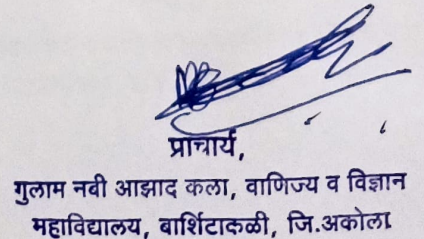 प्राचार्य,
गुलाम नबी आझाद कला, वाणिज्य व विज्ञान
महाविद्यालय, बार्शिटाकळी, जि.अकोला